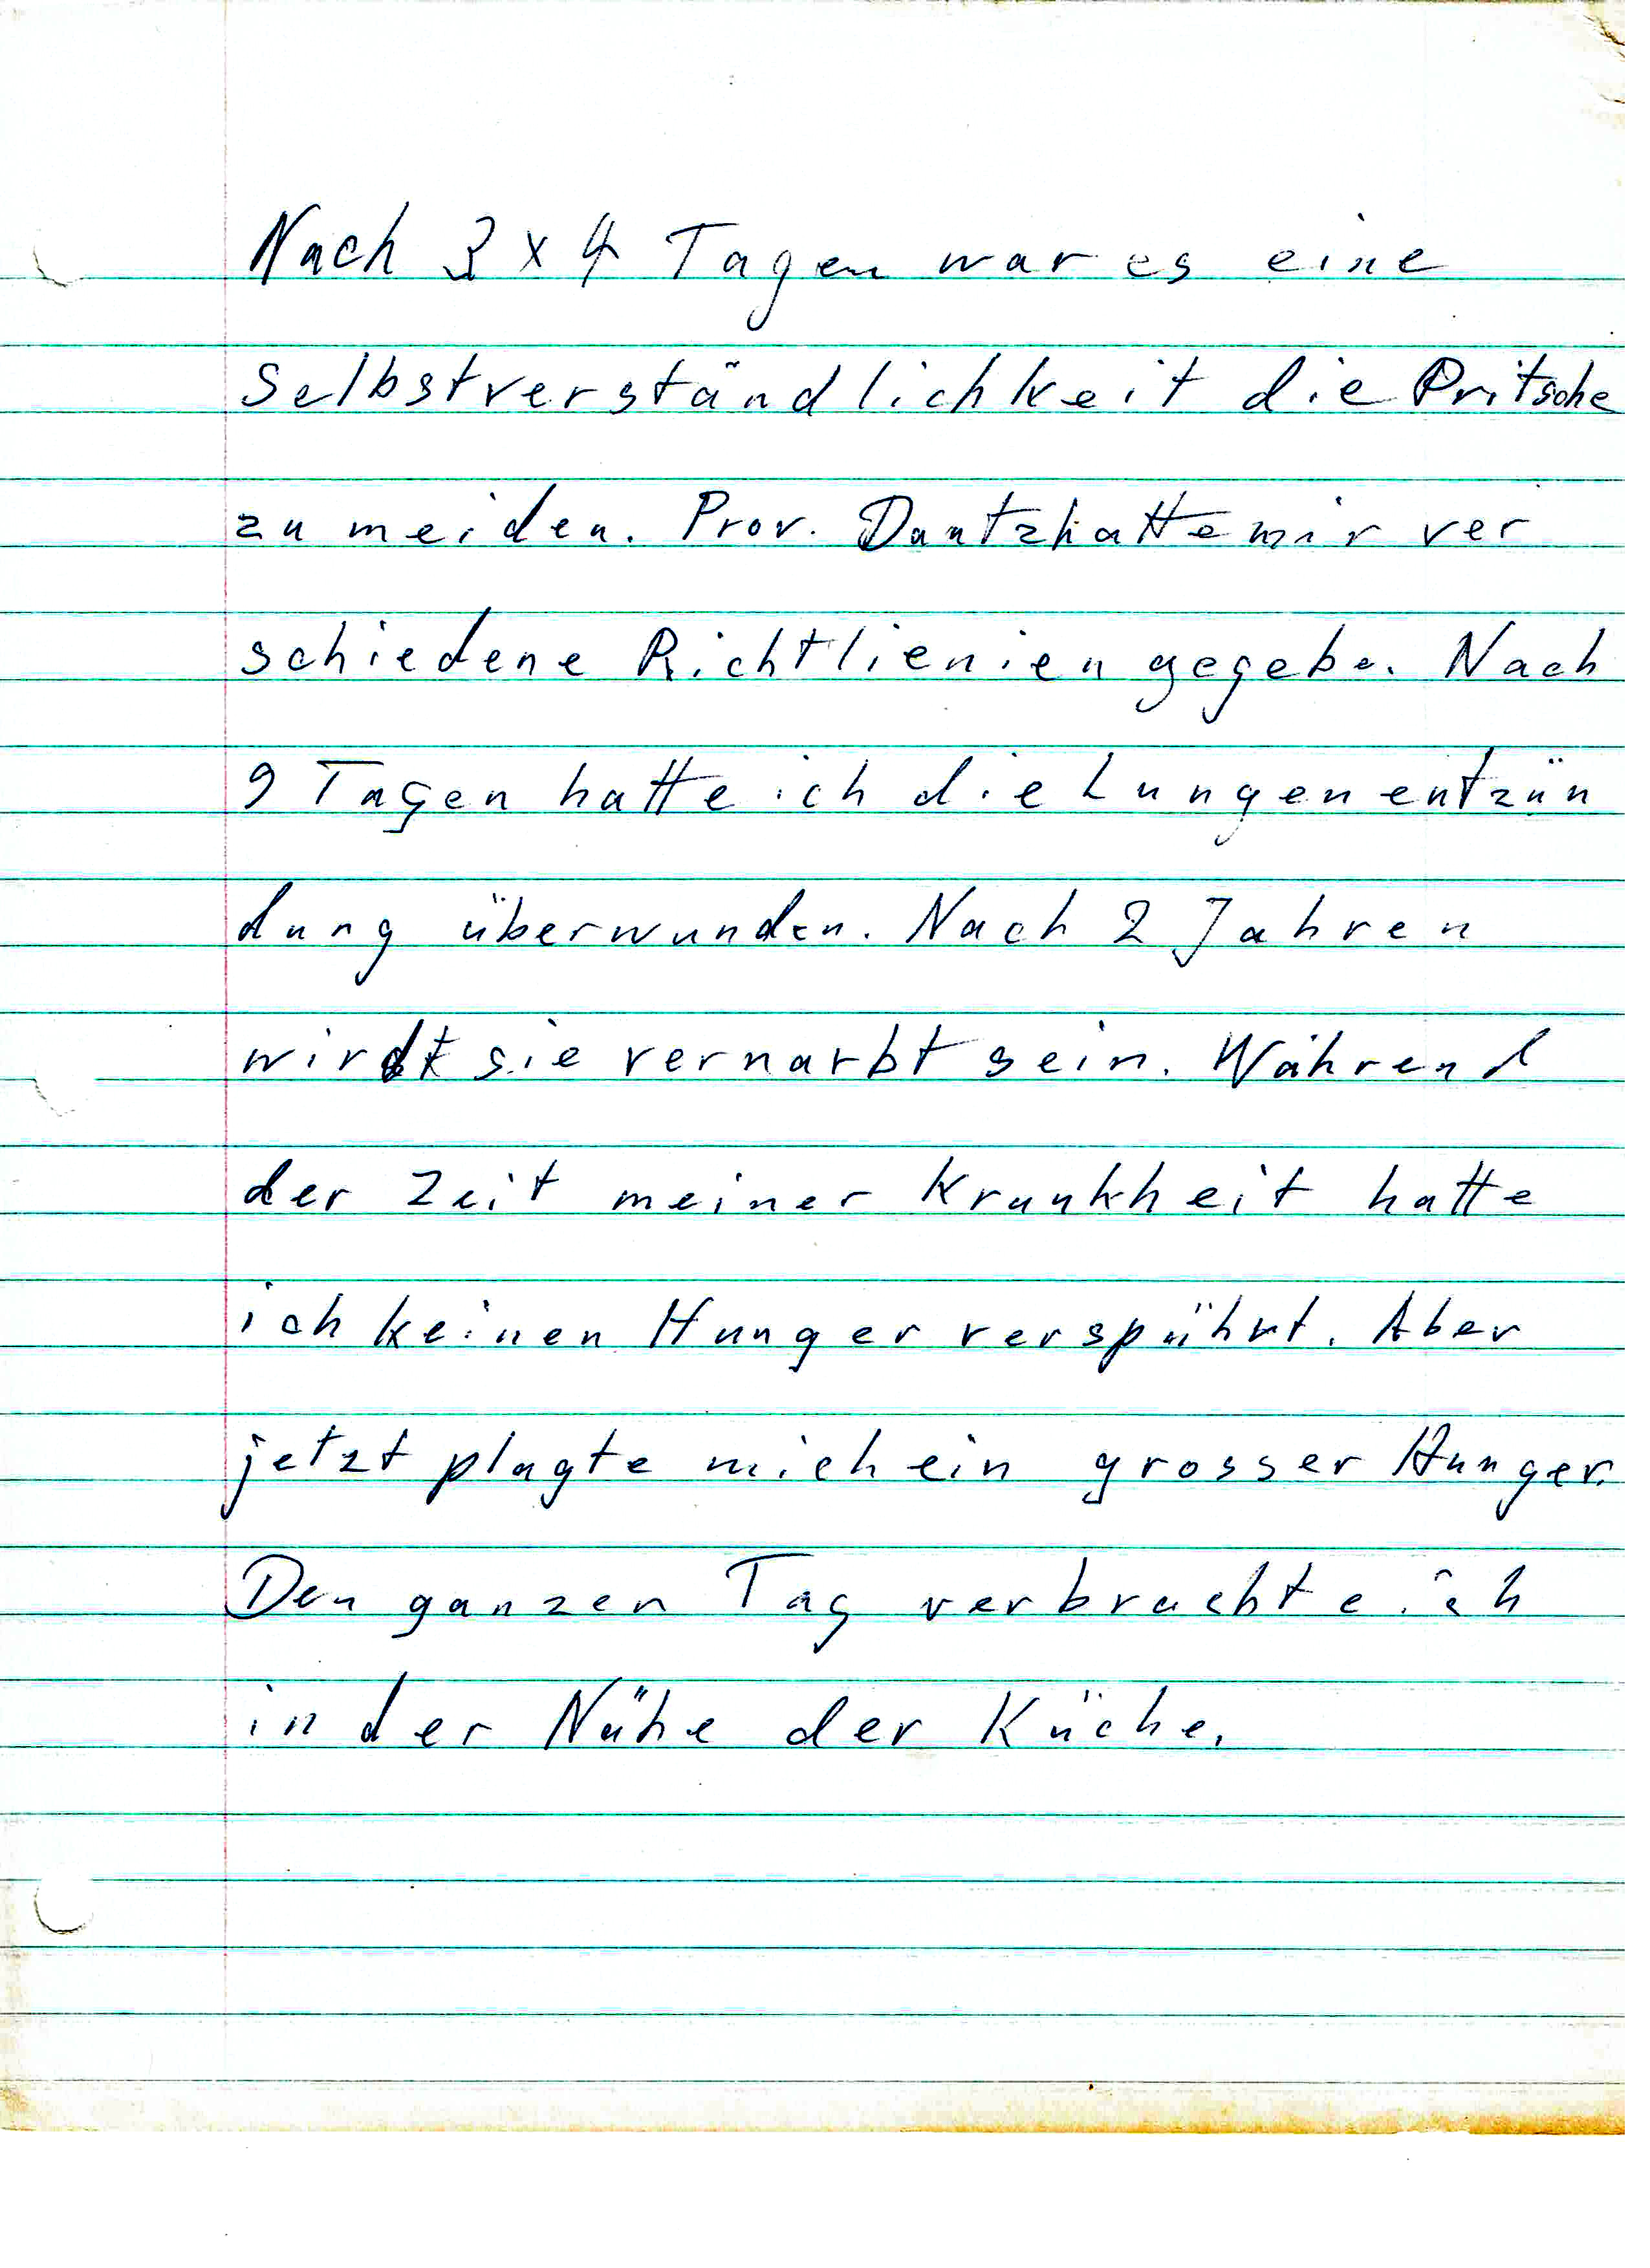 Nach 3 x 4 Tagen war es eine
Selbstverständlichkeit die Pritsche
zu meiden. Prov. Dautzhatte mir ver
schiedene Richtlienien gegebe. Nach
9 Tagen hatte ich die Lungenentzün
dung überwunden. Nach 2 Jahren
wirdt sie vernarbt sein. Während
der Zeit meiner Krankheit hatte
ich keinen Hunger verspührt. Aber
jetzt plagte mich ein grosser Hunger.
Den ganzen Tag verbrachte ich
in der Nähe der Küche.